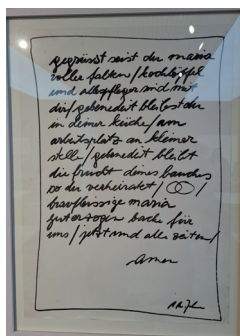 gegrüsst seist du maria
voller falten / kochlöffel
und allespfleger sind mit
dir / gebenedeit bleibst du
in deiner küche / am
arbeitsplatz an kleiner
stelle / gebenedeit bleibt
die frucht deines bauches
so du verheiratet / /
bravfleissige maria
guterzogen backe für
uns / jetzt und alle zeiten /
amen